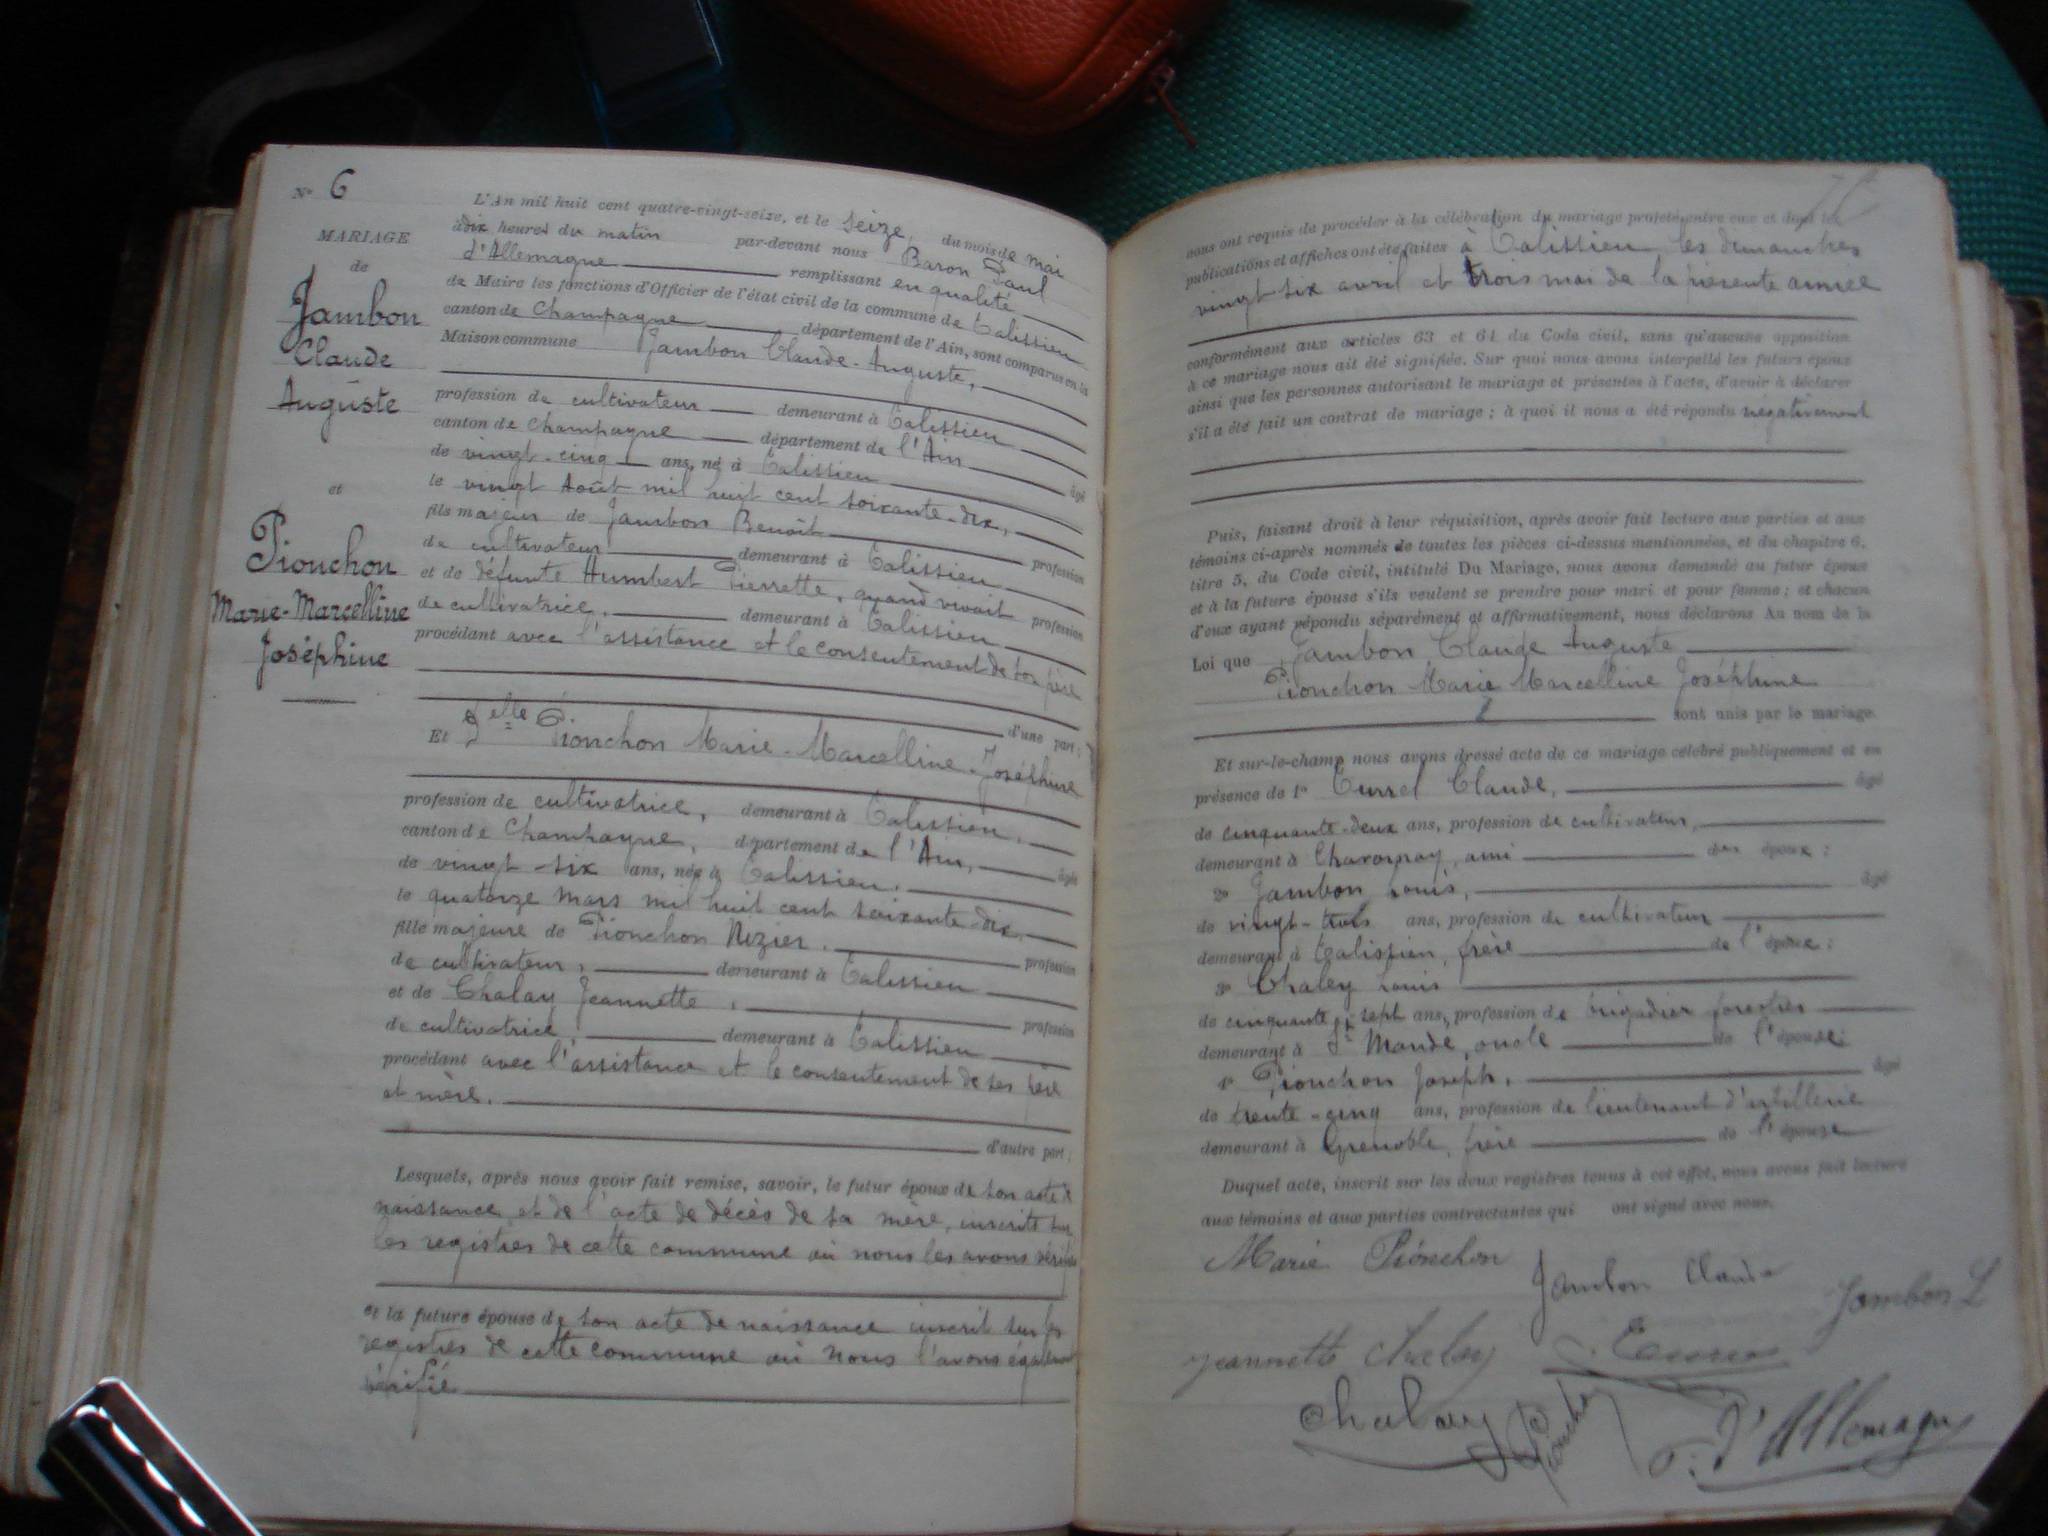 N° 6
MARIAGE
de
Jambon
Claude
Auguste
et
Pionchon
Marie-Marcelline
Joséphine
L'An mil huit cent quatre-vingt-seize, et le seize, du mois de mai
à dix heures du matin par-devant nous Baron Paul
d'Allemagne remplissant en qualité
de Maire les fonctions d'Officier de l'état civil de la commune de Talissieu
canton de Champagne département de l'Ain, sont comparus en la
Maison commune Jambon Claude-Auguste,
profession de cultivateur demeurant à Talissieu
canton de Champagne département de l'Ain âgé
de vingt-cinq ans, né à Talissieu
le vingt Août mil huit cent soixante-dix,
fils majeur de Jambon Benoît profession
de cultivateur demeurant à Talissieu
et de défunte Humbert Pierrette, quand vivait profession
de cultivatrice, demeurant à Talissieu
procédant avec l'assistance et le consentement de son père
d'une part;
Et Delle Pionchon Marie-Marcelline-Joséphine
profession de cultivatrice, demeurant à Talissieu,
canton de Champagne, département de l'Ain, âgée
de vingt-six ans, née à Talissieu,
le quatorze mars mil huit cent soixante-dix,
fille majeure de Pionchon Nizier, profession
de cultivateur, demeurant à Talissieu
et de Chalay Jeannette, profession
de cultivatrice, demeurant à Talissieu
procédant avec l'assistance et le consentement de ses père
et mère.
d'autre part;
Lesquels, après nous avoir fait remise, savoir, le futur époux de son acte de
naissance et de l'acte de décès de sa mère, inscrits sur
les registres de cette commune où nous les avons vérifiés
et la future épouse de son acte de naissance inscrit sur les
registres de cette commune où nous l'avons également
vérifié
nous ont requis de procéder à la célébration du mariage projeté entre eux et dont les
publications et affiches ont été faites à Talissieu les dimanches
vingt six avril et trois mai de la présente année
conformément aux articles 63 et 64 du Code civil, sans qu'aucune opposition
à ce mariage nous ait été signifiée. Sur quoi nous avons interpellé les futurs époux
ainsi que les personnes autorisant le mariage et présentes à l'acte, d'avoir à déclarer
s'il a été fait un contrat de mariage; à quoi il nous a été répondu négativement
Puis, faisant droit à leur réquisition, après avoir fait lecture aux parties et aux
témoins ci-après nommés de toutes les pièces ci-dessus mentionnées, et du chapitre 6,
titre 5, du Code civil, intitulé Du Mariage, nous avons demandé au futur époux
et à la future épouse s'ils veulent se prendre pour mari et pour femme; et chacun
d'eux ayant répondu séparément et affirmativement, nous déclarons Au nom de la
Loi que Jambon Claude Auguste
Pionchon Marie Marcelline Joséphine
sont unis par le mariage.
Et sur-le-champ nous avons dressé acte de ce mariage célébré publiquement et en
présence de 1° Turrel Claude, âgé
de cinquante-deux ans, profession de cultivateur,
demeurant à Chavornay, ami des époux;
2° Jambon Louis, âgé
de vingt-trois ans, profession de cultivateur
demeurant à Talissieu, frère de l'époux;
3° Chaley Louis
de cinquante sept ans, profession de brigadier forestier
demeurant à St Mandé, oncle de l'épouse;
4° Pionchon Joseph, âgé
de trente-cinq ans, profession de lieutenant d'artillerie
demeurant à Grenoble, frère de l'épouse
Duquel acte, inscrit sur les deux registres tenus à cet effet, nous avons fait lecture
aux témoins et aux parties contractantes qui ont signé avec nous.
Marie Pionchon
Jambon Claude
Jambon L
Jeannette Chalay
Chalay
Pionchon
P. d'Allemagne